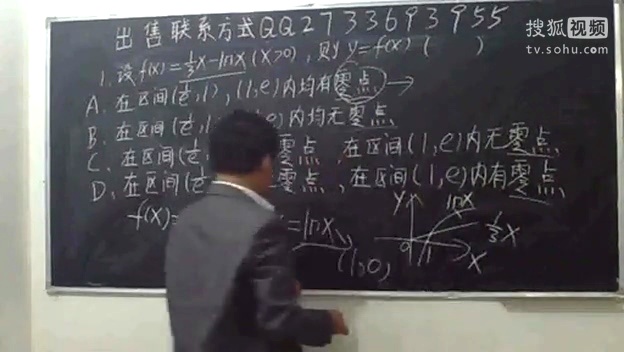 出售联系方式QQ2733693955
搜狐视频
tv.sohu.com
1.设f(x)=⅓x-lnx(x>0),则y=f(x)( )
A.在区间(1/e,1),(1,e)内均有零点→
B.在区间(1/e,1 ,e)内均无零点
C.在区间(1/e 零点,在区间(1,e)内无零点
D.在区间(1/e 零点,在区间(1,e)内有零点
f(x)= =lnx
(1,0)
y
lnx
⅓x
0
1
x